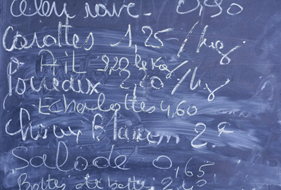 Céleri rave 0,90
Carottes 1,25 / kg
Ail 2,20 le Kg
Poireaux 2,20 / kg
Echalottes 4,60
Choux Flamen 2.
Salade 0,65
Bottes de bettes 2